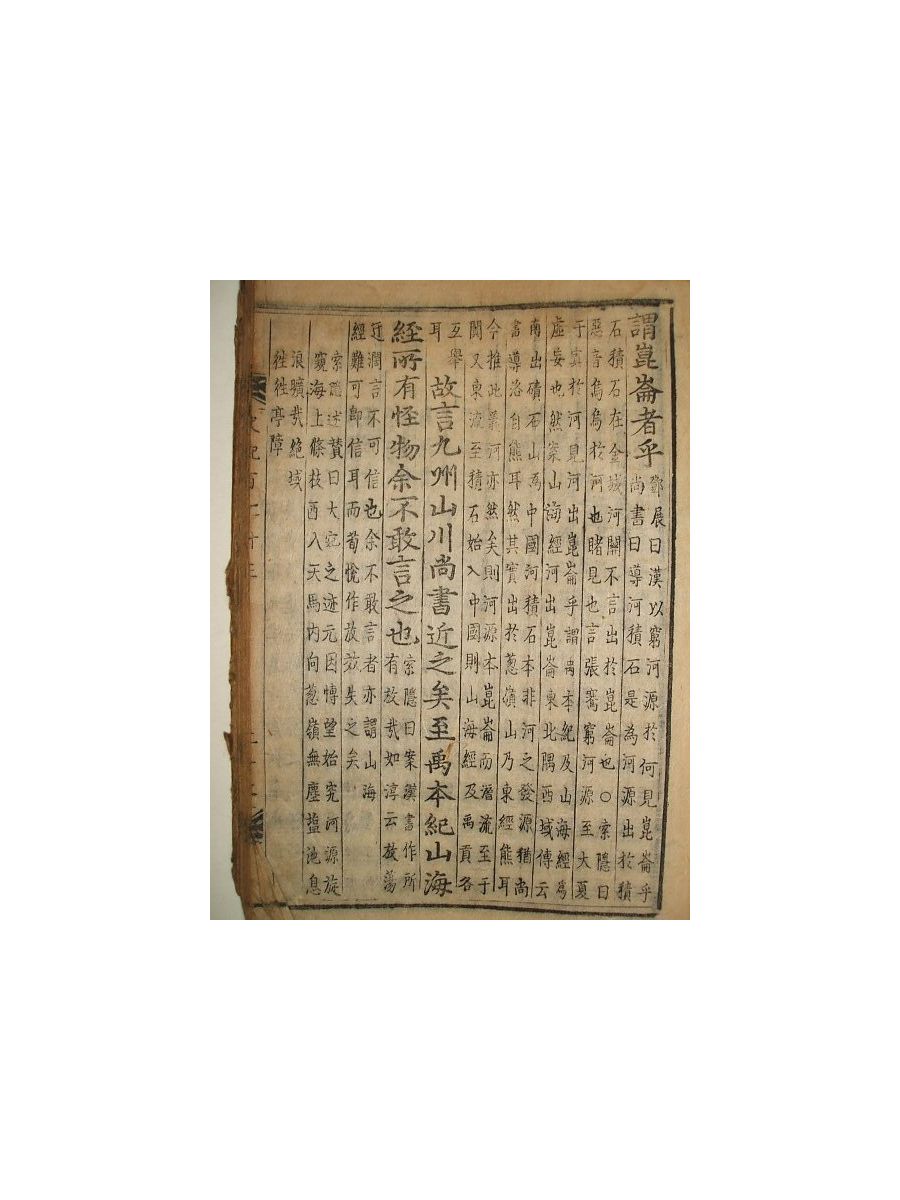 謂崑崙者乎 鄧展曰漢以窮河源於何見崑崙乎
尚書曰導河積石是為河源出於積
石積石在金城河關不言出於崑崙也○索隱曰
惡音烏烏於河也睹見也言張騫窮河源至大夏
于窴於河見河出崑崙乎謂禹本紀及山海經為
虛妄也然案山海經河出崑崙東北隅西域傳云
南出磧石山為中國河積石本非河之發源猶尚
書導洛自熊耳然其實出於蔥嶺山乃東經熊耳
今推此義河亦然矣則河源本崑崙而潛流至于
闐又東流至積石始入中國則山海經及禹貢各
互舉
耳
故言九州山川尚書近之矣至禹本紀山海
經所有怪物余不敢言之也 索隱曰案漢書作所
有放哉如淳云放蕩
迂闊言不可信也余不敢言者亦謂山海
經難可即信耳而荀悅作放效失之矣
索隱述贊曰大宛之迹元因博望始究河源旋
窺海上條枝西入天馬內向葱嶺無塵塩池息
浪曠哉絕域
往往亭障
史記百二十三